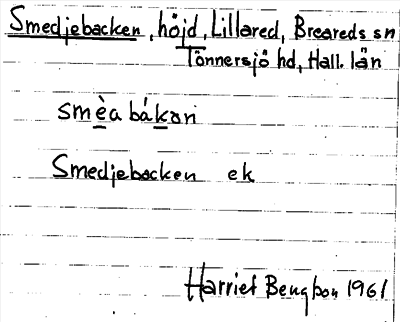 Smedjebacken, höjd, Lillared, Breareds sn
Tönnersjö hd, Hall. län
smèa bákan
Smedjebacken ek
Harriet Bengtson 1961